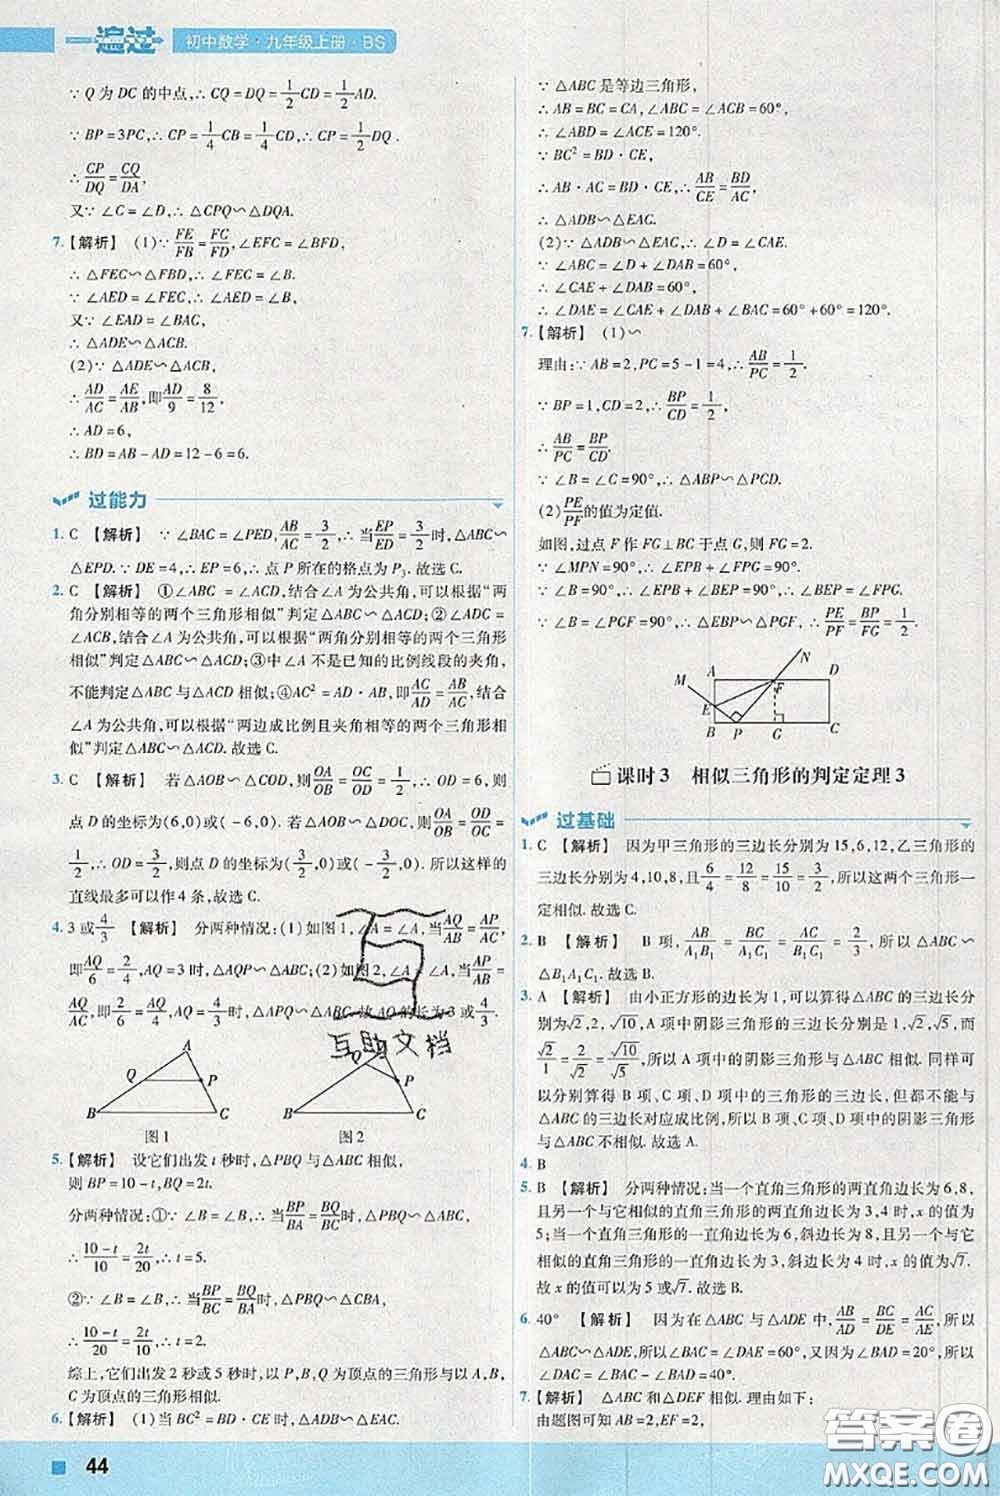 一遍过 初中数学·九年级上册·BS
∵ Q 为 DC 的中点,∴ CQ = DQ = 1/2 CD = 1/2 AD.
∵ BP = 3PC,∴ CP = 1/4 CB = 1/4 CD,∴ CP = 1/2 DQ.
∴ CP/DQ = CQ/DA,
又∵ ∠C = ∠D,∴ △CPQ∽△DQA.
7.【解析】 (1)∵ FE/FB = FC/FD, ∠EFC = ∠BFD,
∴ △FEC∽△FBD,∴ ∠FEC = ∠B.
∵ ∠AED = ∠FEC,∴ ∠AED = ∠B,
又∵ ∠EAD = ∠BAC,
∴ △ADE∽△ACB.
(2)∵ △ADE∽△ACB,
∴ AD/AC = AE/AB,即 AD/9 = 8/12,
∴ AD = 6,
∴ BD = AB - AD = 12 - 6 = 6.
过能力
1. C 【解析】 ∵ ∠BAC = ∠PED, AB/AC = 3/2,∴ 当 EP/ED = 3/2 时,△ABC∽
△EPD.∵ DE = 4,∴ EP = 6,∴ 点 P 所在的格点为 P₃.故选 C.
2. C 【解析】 ①∠ABC = ∠ACD,结合∠A 为公共角,可以根据“两
角分别相等的两个三角形相似”判定△ABC∽△ACD;②∠ADC =
∠ACB,结合∠A 为公共角,可以根据“两角分别相等的两个三角形
相似”判定△ABC∽△ACD;③中∠A 不是已知的比例线段的夹角,
不能判定△ABC 与△ACD 相似;④AC² = AD · AB,即 AC/AD = AB/AC,结合
∠A 为公共角,可以根据“两边成比例且夹角相等的两个三角形相
似”判定△ABC∽△ACD.故选 C.
3. C 【解析】 若△AOB∽△COD,则 OA/OC = OB/OD = 2/1,∴ OD = 6,则
点 D 的坐标为(6,0)或(-6,0).若△AOB∽△DOC,则 OA/OB = OD/OC =
1/2,∴ OD = 3/2,则点 D 的坐标为(3/2,0)或(-3/2,0).所以这样的
直线最多可以作 4 条,故选 C.
4. 3 或 4/3 【解析】 分两种情况:(1)如图 1,∠A = ∠A,当 AQ/AB = AP/AC,
即 AQ/6 = 2/4,AQ = 3 时,△AQP∽△ABC;(2)如图 2,∠A = ∠A,当 AP/AB =
AQ/AC,即 AQ/4 = 2/6,AQ = 4/3 时,△APQ∽△ABC.故 AQ 的长为 3 或 4/3.
互助文档
A Q P B C
图 1
A Q P B C
图 2
5.【解析】 设它们出发 t 秒时,△PBQ 与△ABC 相似,
则 BP = 10 - t,BQ = 2t.
分两种情况:①∵ ∠B = ∠B,∴ 当 BP/BA = BQ/BC 时,△PBQ∽△ABC,
∴ (10-t)/10 = 2t/20,∴ t = 5.
②∵ ∠B = ∠B,∴ 当 BP/BC = BQ/BA 时,△PBQ∽△CBA,
∴ (10-t)/20 = 2t/10,∴ t = 2.
综上,它们出发 2 秒或 5 秒时,以 P,B,Q 为顶点的三角形与以 A,B,
C 为顶点的三角形相似.
6.【解析】 (1)当 BC² = BD · CE 时,△DAB∽△AEC.
∵ △ABC 是等边三角形,
∴ AB = BC = CA,∠ABC = ∠ACB = 60°,
∴ ∠ABD = ∠ACE = 120°.
∵ BC² = BD · CE,
∴ AB · AC = BD · CE,∴ AB/CE = BD/AC,
∴ △DAB∽△AEC.
(2)∵ △DAB∽△AEC,∴ ∠D = ∠CAE.
∵ ∠ABC = ∠D + ∠DAB = 60°,
∴ ∠CAE + ∠DAB = 60°,
∴ ∠DAE = ∠CAE + ∠DAB + ∠BAC = 60° + 60° = 120°.
7.【解析】 (1)∽
理由:∵ AB = 2,PC = 5 - 1 = 4,∴ AB/PC = 1/2.
∵ BP = 1,CD = 2,∴ BP/CD = 1/2,
∴ AB/PC = BP/CD.
∵ ∠B = ∠C = 90°,∴ △ABP∽△PCD.
(2) PE/PF 的值为定值.
如图,过点 F 作 FG⊥BC 于点 G,则 FG = 2.
∵ ∠MPN = 90°,∴ ∠BPE + ∠FPG = 90°.
∵ ∠BPE + ∠BEP = 90°,∴ ∠BEP = ∠FPG.
∵ ∠B = ∠PGF = 90°,∴ △EBP∽△PGF,∴ PE/PF = BP/FG = 1/2.
M A N D E F B P G C
课时 3 相似三角形的判定定理 3
过基础
1. C 【解析】 因为甲三角形的三边长分别为 15,6,12,乙三角形的
三边长分别为 4,10,8,且 6/4 = 12/8 = 15/10 = 3/2,所以这两个三角形一
定相似.故选 C.
2. B 【解析】 B 项, AB/A₁B₁ = BC/A₁C₁ = AC/B₁C₁ = 2/3,所以 △ABC∽
△B₁A₁C₁.故选 B.
3. A 【解析】 由小正方形的边长为 1,可以算得△ABC 的三边长分
别为√2,2,√10,A 项中阴影三角形的三边长分别为 1,√2,√5,而
√2/1 = 2/√2 = √10/√5,所以 A 项中的阴影三角形与△ABC 相似.同样可
以分别算得 B 项、C 项、D 项中的三角形的三边长,但都不能与
△ABC 的三边长对应成比例,所以 B 项、C 项、D 项中的阴影三角形
与△ABC 不相似.故选 A.
4. B
5. B 【解析】 分两种情况:当一个直角三角形的两直角边长为 6,8,
且另一个与它相似的直角三角形的两直角边长为 3,4 时,x 的值为
5;当一个直角三角形的一直角边长为 6,斜边长为 8,另一个与它
相似的直角三角形的一直角边长为 3,斜边长为 4 时,x 的值为√7.
故 x 的值可以为 5 或√7.故选 B.
6. 40° 【解析】 因为在 △ABC 与 △ADE 中, AB/AD = BC/DE = AC/AE,所以
△ABC∽△ADE,所以∠BAC = ∠DAE,所以∠BAD = ∠BAC -
∠DAC = ∠DAE - ∠DAC = ∠CAE = 40°.
7.【解析】 △ABC 和△DEF 相似.理由如下:
由题图可知 AB = 2,EF = 2,
44
答案圈
MXQE.COM